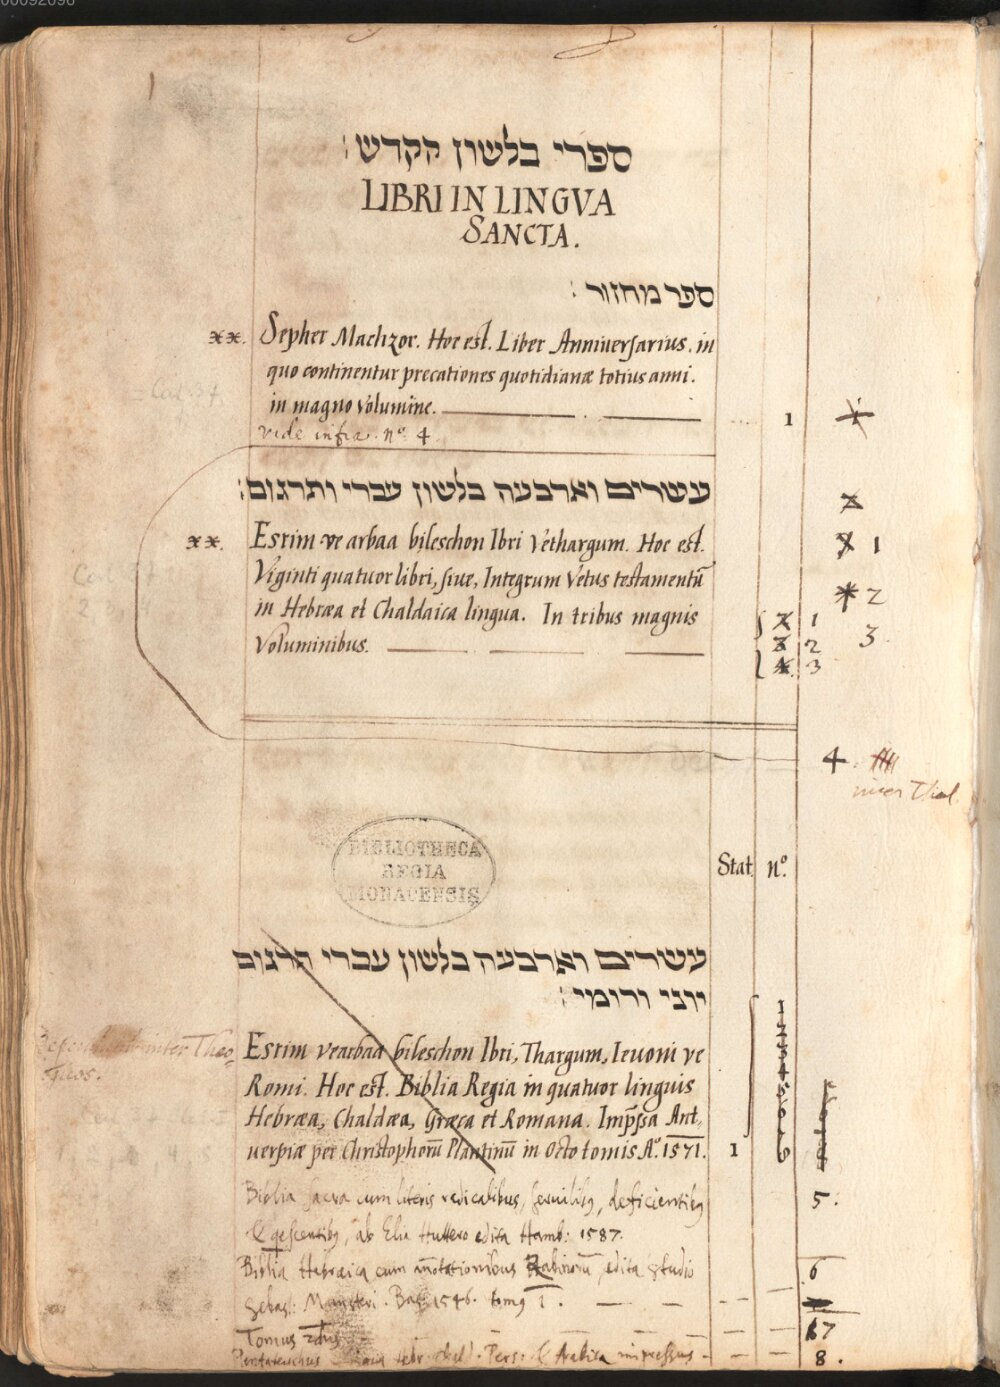 00092096
1
ספרי בלשון הקדש:
LIBRI IN LINGVA
SANCTA.
ספר מחזור:
xx. Sepher Machzor. Hoc est. Liber Anniuersarius. in
quo continentur precationes quotidianæ totius anni.
in magno volumine. 1 1
vide infra. nº 4
עשרים וארבעה בלשון עברי ותרגום:
xx. Esrim ve arbaa bileschon Ibri Vethargum. Hoc est. 1
Viginti quatuor libri, siue, Integrum Vetus testamentū 2
in Hebræa et Chaldaica lingua. In tribus magnis 1 3
Voluminibus. 2
3
4.
inter Theol.
Stat. nº.
BIBLIOTHECA
REGIA
MONACENSIS
עשרים וארבעה בלשון עברי תרגום
יווני ורומי:
inter Theo-
Esrim vearbaa bileschon Ibri, Thargum, Ieuoni ve
Romi. Hoc est. Biblia Regia in quatuor linguis
Hebræa, Chaldæa, Græca et Romana. Imp̄ssa Ant,
verpiæ per Christophorū Plantinū in Octo tomis Aº. 1571. 1
Biblia sacra cum literis radicalibus, seruilibꝫ, deficientibꝫ 5.
& qescentibꝫ, ab Elia Huttero edita Hamb: 1587.
Biblia Hebraica cum edita studio 6
Sebast: Munsteri. Bas. 1546. tomꝫ 1.
Tomus 2dus 7
Pentateuchus hebr. Pers. & Arabica impressus 8.